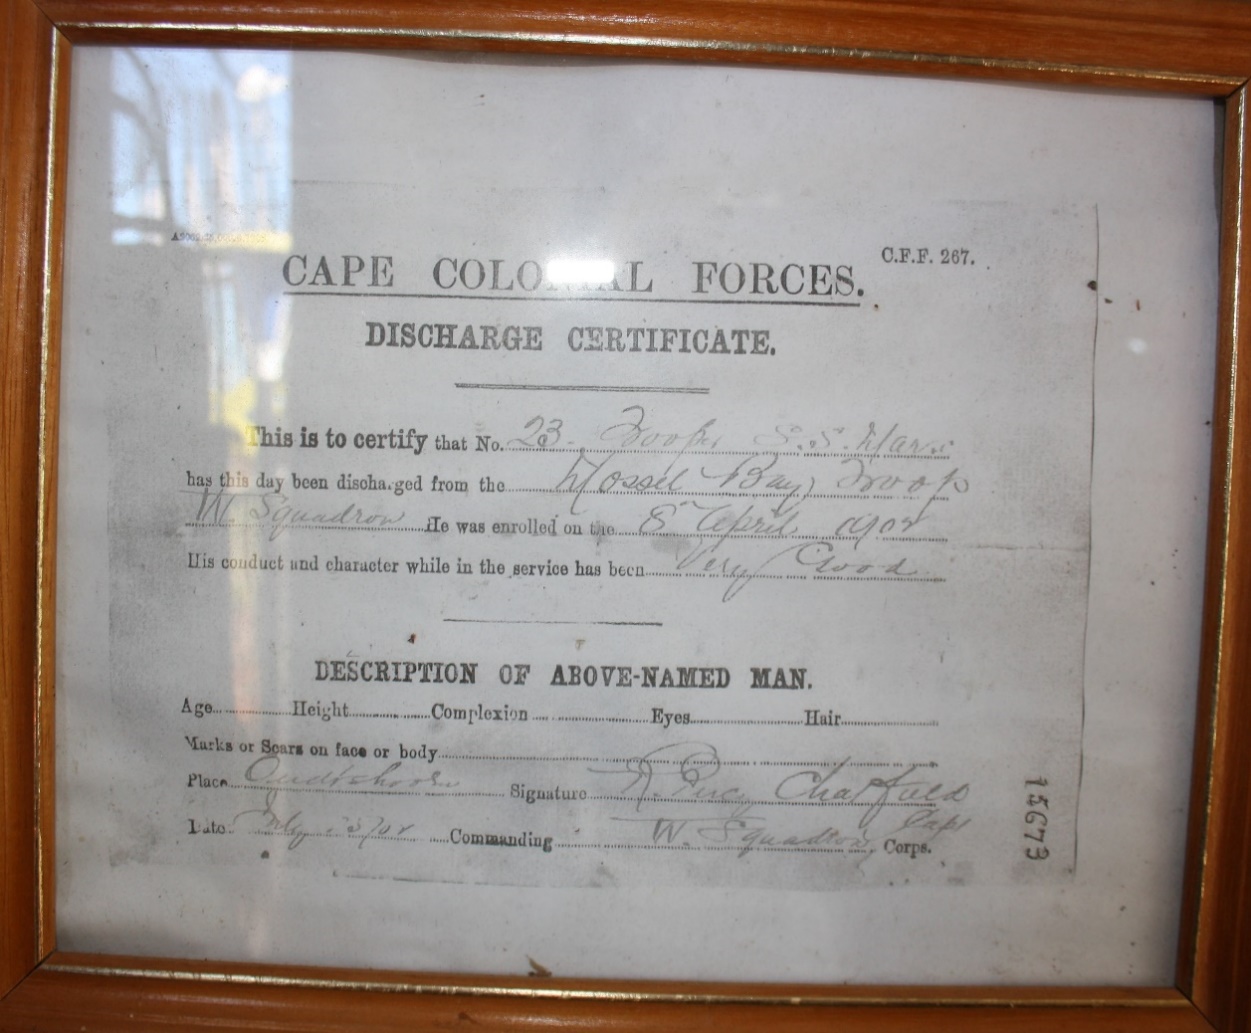 C.F.F. 267.
CAPE COLONIAL FORCES.
DISCHARGE CERTIFICATE.
This is to certify that No. 23. Trooper S. S.
has this day been discharged from the Mossel Bay Troop
W. Squadron He was enrolled on the 8th April
His conduct and character while in the service has been Very Good
DESCRIPTION OF ABOVE-NAMED MAN.
Age Height Complexion Eyes Hair
Marks or Scars on face or body
Place Oudtshoorn Signature R. Percy Chatfield
Capt
Date Commanding W. Squadron, Corps.
15673